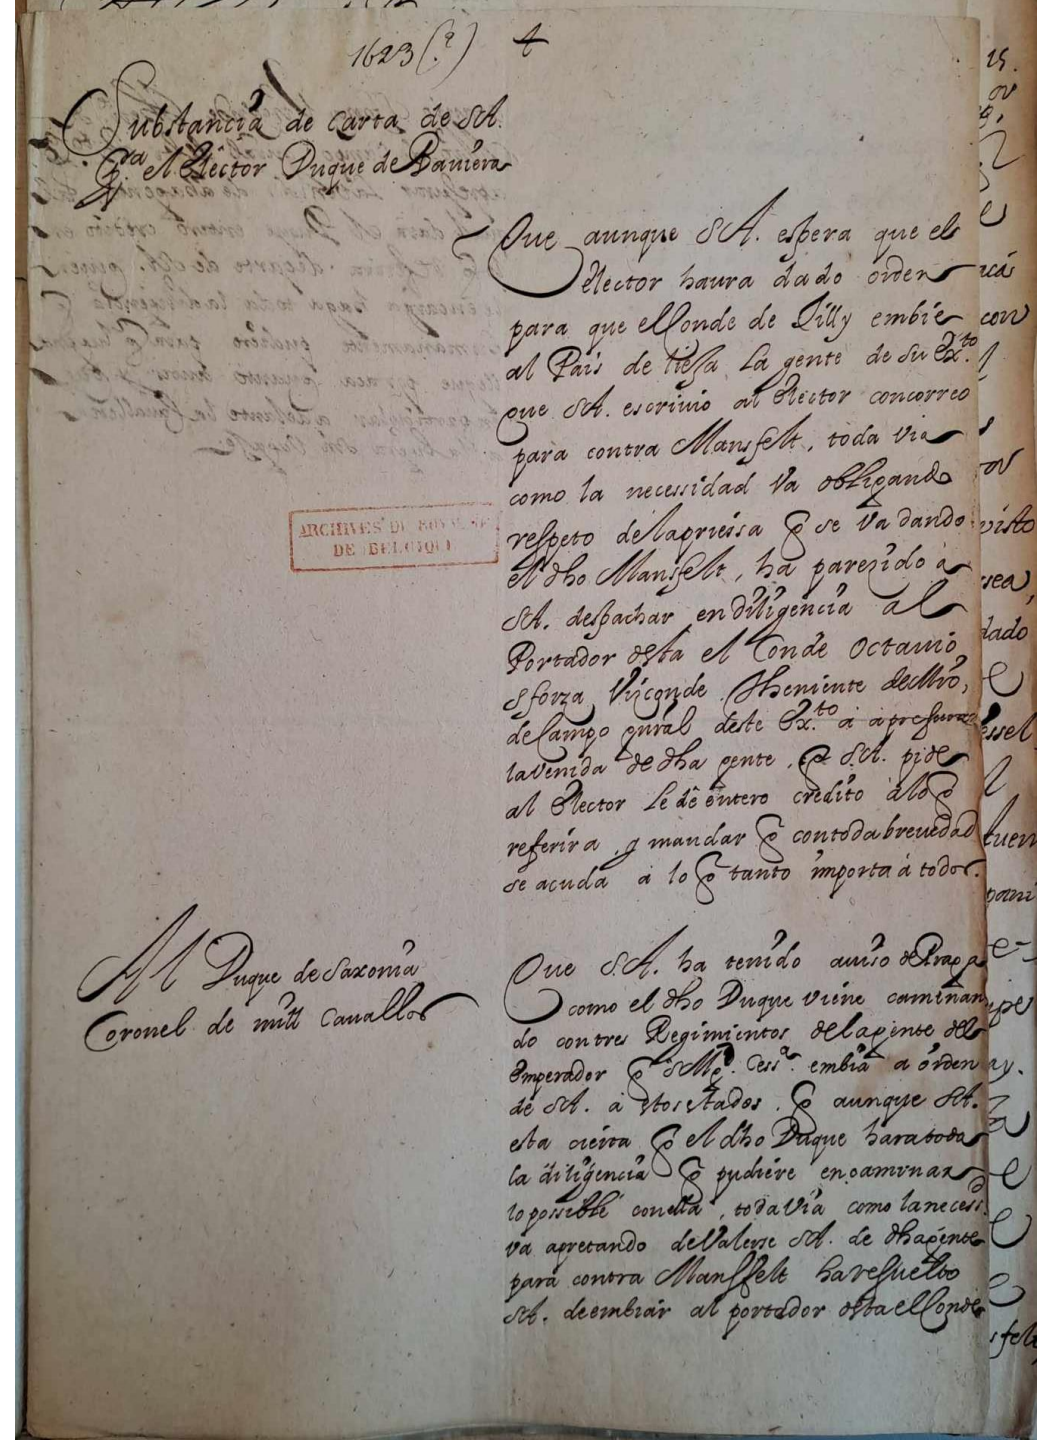 1623 (?)
Substancia de carta de SA.
p.ra el Elector Duque de Baviera
Que aunque SA. espera que el
Elector haura dado orden
para que el Conde de Tilly embie
al Pais de Liessa la gente de su Ex.to
que SA. escrivio al Elector con correo
para contra Mansfelt, toda via
como la necessidad va obligando
respeto de la priessa q se va dando
el dho Mansfelt, ha parezido a
SA. despachar en diligencia al
Portador desta el Conde Octavio
Sforza Vizconde Theniente de Mro,
de Campo gnral deste Ex.to a apresurar
la venida de dha gente, q SA. pide
al Elector le dê entero credito a lo q
referira, y mandar q con toda brevedad
se acuda a lo q tanto importa á todos.
ARCHIVES DU ROYAUME
DE BELGIQUE
Al Duque de Saxonia
Coronel de mill Cavallos
Que S.A. ha tenido aviso de Praga
como el dho Duque viene caminan
do con tres Regimientos de la gente del
Emperador q S Mg.d Cess.a embia a orden
de SA. a estos estados, q aunque SA.
esta cierta q el dho Duque hara toda
la diligencia q pudiere encaminar
lo possible con ella, toda via como la necessd.
va apretando de Valerse SA. de dha gente
para contra Mansfelt ha resuelto
SA. de embiar al portador desta el Conde